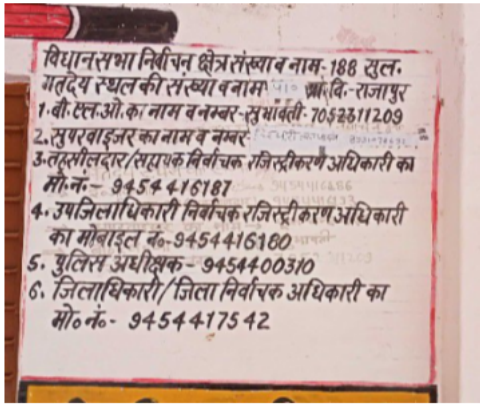 विधानसभा निर्वाचन क्षेत्र संख्या व नाम- 188 सुल.
मतदेय स्थल की संख्या व नाम प्रा.वि.- राजापुर
1. बी.एल.ओ. का नाम व नम्बर- सुभावती- 7052811209
2. सुपरवाइजर का नाम व नम्बर-
3. तहसीलदार/सहायक निर्वाचक रजिस्ट्रीकरण अधिकारी का
मो.नं.- 9454416187
4. उपजिलाधिकारी निर्वाचक रजिस्ट्रीकरण अधिकारी
का मोबाइल नं०- 9454416180
5. पुलिस अधीक्षक- 9454400310
6. जिलाधिकारी/जिला निर्वाचक अधिकारी का
मो० नं०- 9454417542